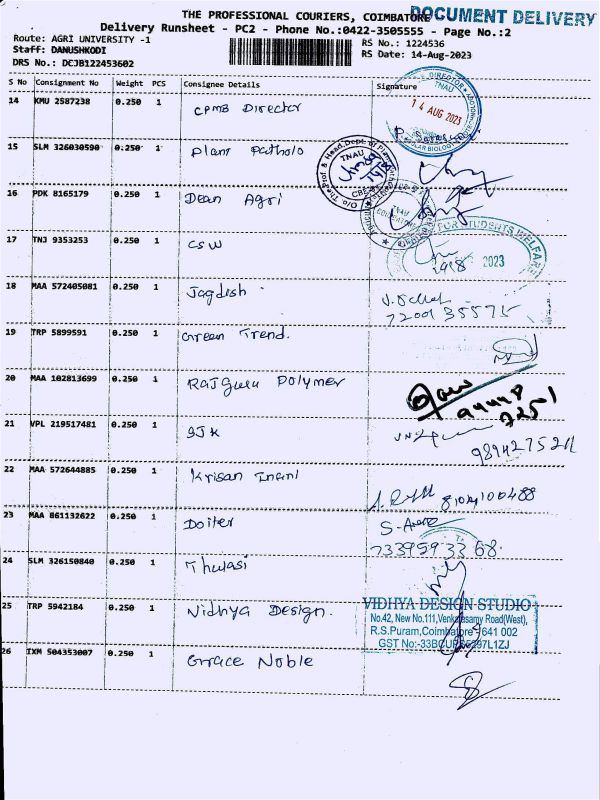 THE PROFESSIONAL COURIERS, COIMBATORE
DOCUMENT DELIVERY
Delivery Runsheet - PC2 - Phone No.:0422-3505555 - Page No.:2
Route: AGRI UNIVERSITY -1
RS No.: 1224536
Staff: DANUSHKODI
RS Date: 14-Aug-2023
DRS No.: DCJB122453602
S No Consignment No Weight PCS Consignee Details Signature
14 KMU 2587238 0.250 1 CPMB Director
14 AUG 2023
15 SLM 326030590 0.250 1 Plant Patholo
TNAU
16 PDK 8165179 0.250 1 Dean Agri
17 TNJ 9353253 0.250 1 CSW
FOR STUDENTS WELFARE
2023
18 MAA 572405081 0.250 1 Jagdish
19 TRP 5899591 0.250 1 Green Trend.
20 MAA 102813699 0.250 1 Rajguru Polymer
21 VPL 219517481 0.250 1 SJK
22 MAA 572644885 0.250 1 Krisan Inani
23 MAA 861132622 0.250 1 Doiter
24 SLM 326150840 0.250 1 Thulasi
25 TRP 5942184 0.250 1 Vidhya Design.
VIDHYA DESIGN STUDIO
No.42, New No.111, Venkatasamy Road(West),
R.S.Puram, Coimbatore 641 002
GST No:-
26 IXM 504353007 0.250 1 Grace Noble